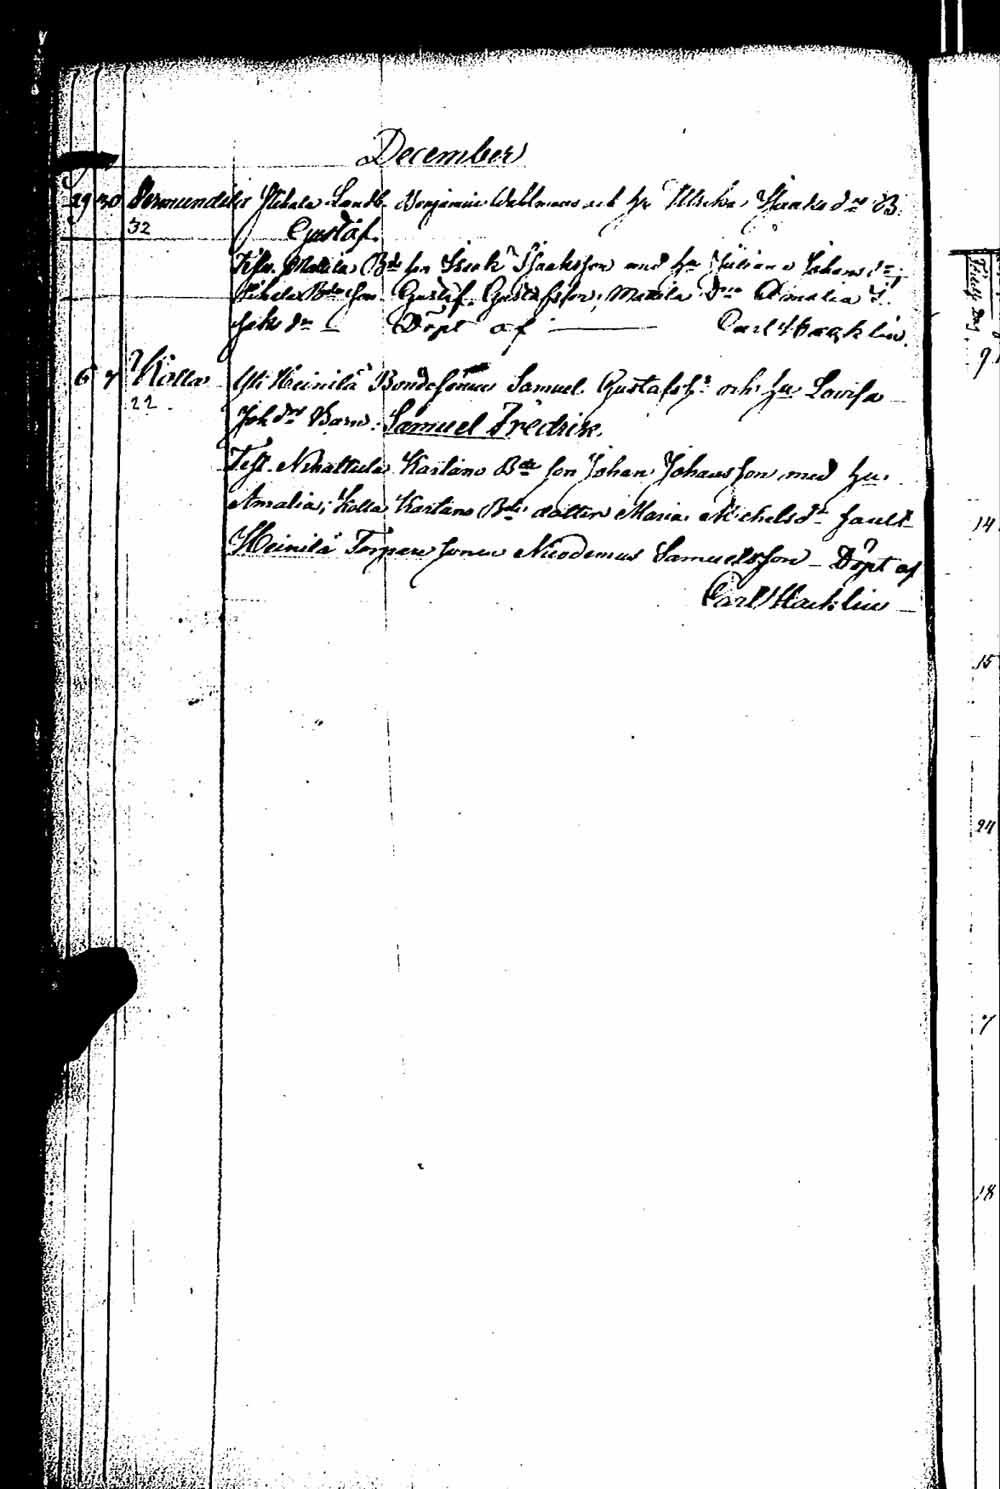 December
29 30 Permundeby Mikala Landb. Benjamin Wahlmans och hu Ulrika Isaks drs B.
32 Gustaf.
Test. Mattila Bde son Isak Isaksson med hu Juliana Johans dr
Mikala Bde son Gustaf Gustafsson, Mattila Amalia
Jaks dr Döpt af Carl Hacklin.
6 7 Kolla Yli Heinilä Bondesonens Samuel Gustafss. och hu Lovisa
22. Joh drs Barn: Samuel Fredrik.
Test. Kartano Bde son Johan Johansson med hu
Amalia; Kolla Kartano Bde dotter Maria Michelsdr samt
Heinilä Torpare sonen Nicodemus Samuelsson – Döpt af
Carl Hacklin
9
14
15
24
7
18